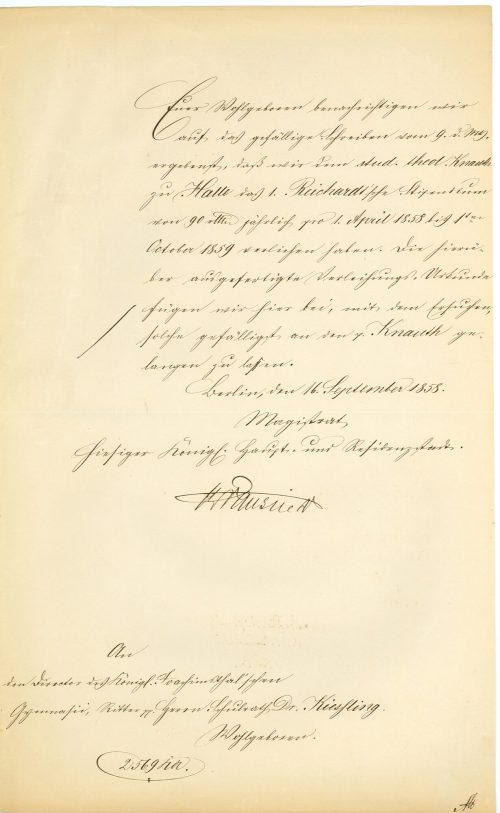 Euer Wohlgeboren benachrichtigen wir
auf das gefällige Schreiben vom 9. d. Mts.
ergebenst, daß wir dem stud. theol. Knauth
zu Halle das 1. Reichardt'sche Stipendium
von 90 rthlr. jährlich pro 1. April 1858 bis 1ten
October 1859 verliehen haben. Die hierü-
ber ausgefertigte Verleihungs-Urkunde
fügen wir hier bei, mit dem Ersuchen,
solche gefälligst an den p. Knauth ge-
langen zu lassen.
Berlin, den 16. September 1858.
Magistrat
hiesiger Königl. Haupt- und Residenzstadt.
An
den Director des Königl. Joachimsthal'schen
Gymnasii, Ritter pp. Herrn Schulrath Dr. Kiessling
Wohlgeboren.